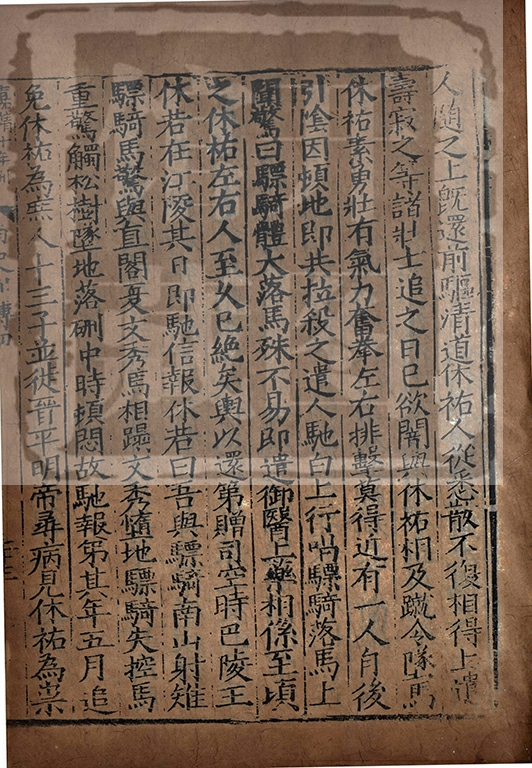 人隨之上旣還前驅清道休祐人從悉散不復相得上遣
壽寂之等諸壯士追之日已欲闇與休祐相及蹴令墜馬
休祐素勇壯有氣力奮拳左右排擊莫得近有一人自後
引陰因頓地即共拉殺之遣人馳白上行唱驃騎落馬上
聞驚曰驃騎體大落馬殊不易即遣御醫上藥相係至頃
之休祐左右人至久已絕矣輿以還第贈司空時巴陵王
休若在江陵其日即馳信報休若曰吾與驃騎南山射雉
驃騎馬驚與直閣夏文秀馬相蹋文秀墮地驃騎失控馬
重驚觸松樹墜地落硎中時頓悶故馳報第其年五月追
免休祐為庶人十三子並徙晉平明帝尋病見休祐為祟